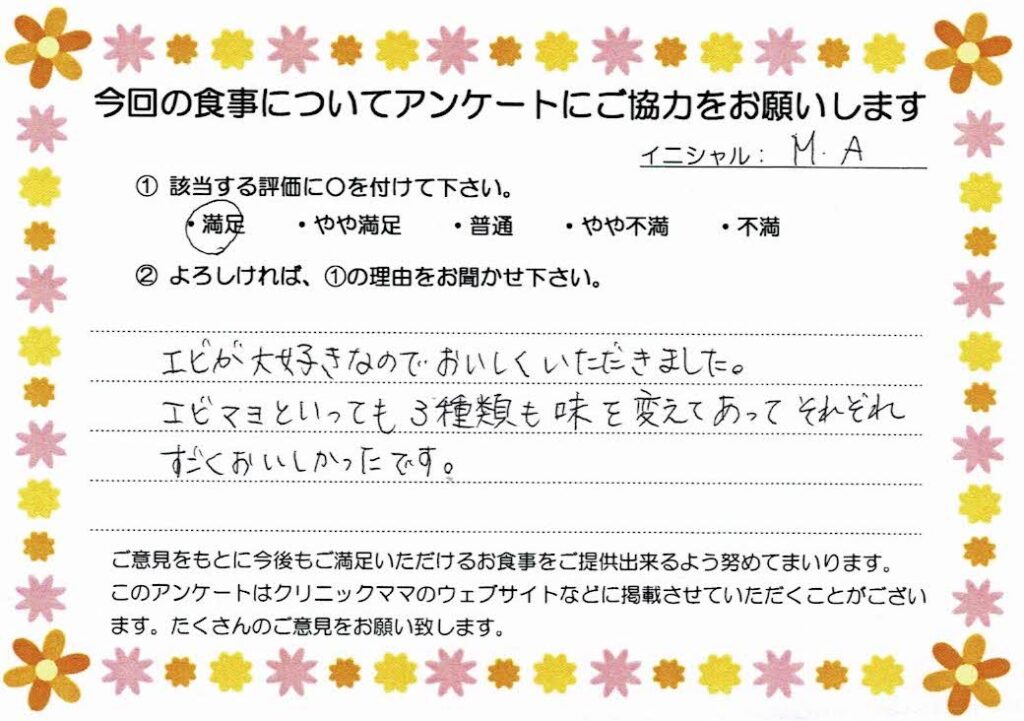 今回の食事についてアンケートにご協力をお願いします
イニシャル： M. A
① 該当する評価に〇を付けて下さい。
・満足 ・やや満足 ・普通 ・やや不満 ・不満
② よろしければ、①の理由をお聞かせ下さい。
エビが大好きなのでおいしくいただきました。
エビマヨといっても3種類も味を変えてあってそれぞれ
すごくおいしかったです。
ご意見をもとに今後もご満足いただけるお食事をご提供出来るよう努めてまいります。
このアンケートはクリニックママのウェブサイトなどに掲載させていただくことがござい
ます。たくさんのご意見をお願い致します。